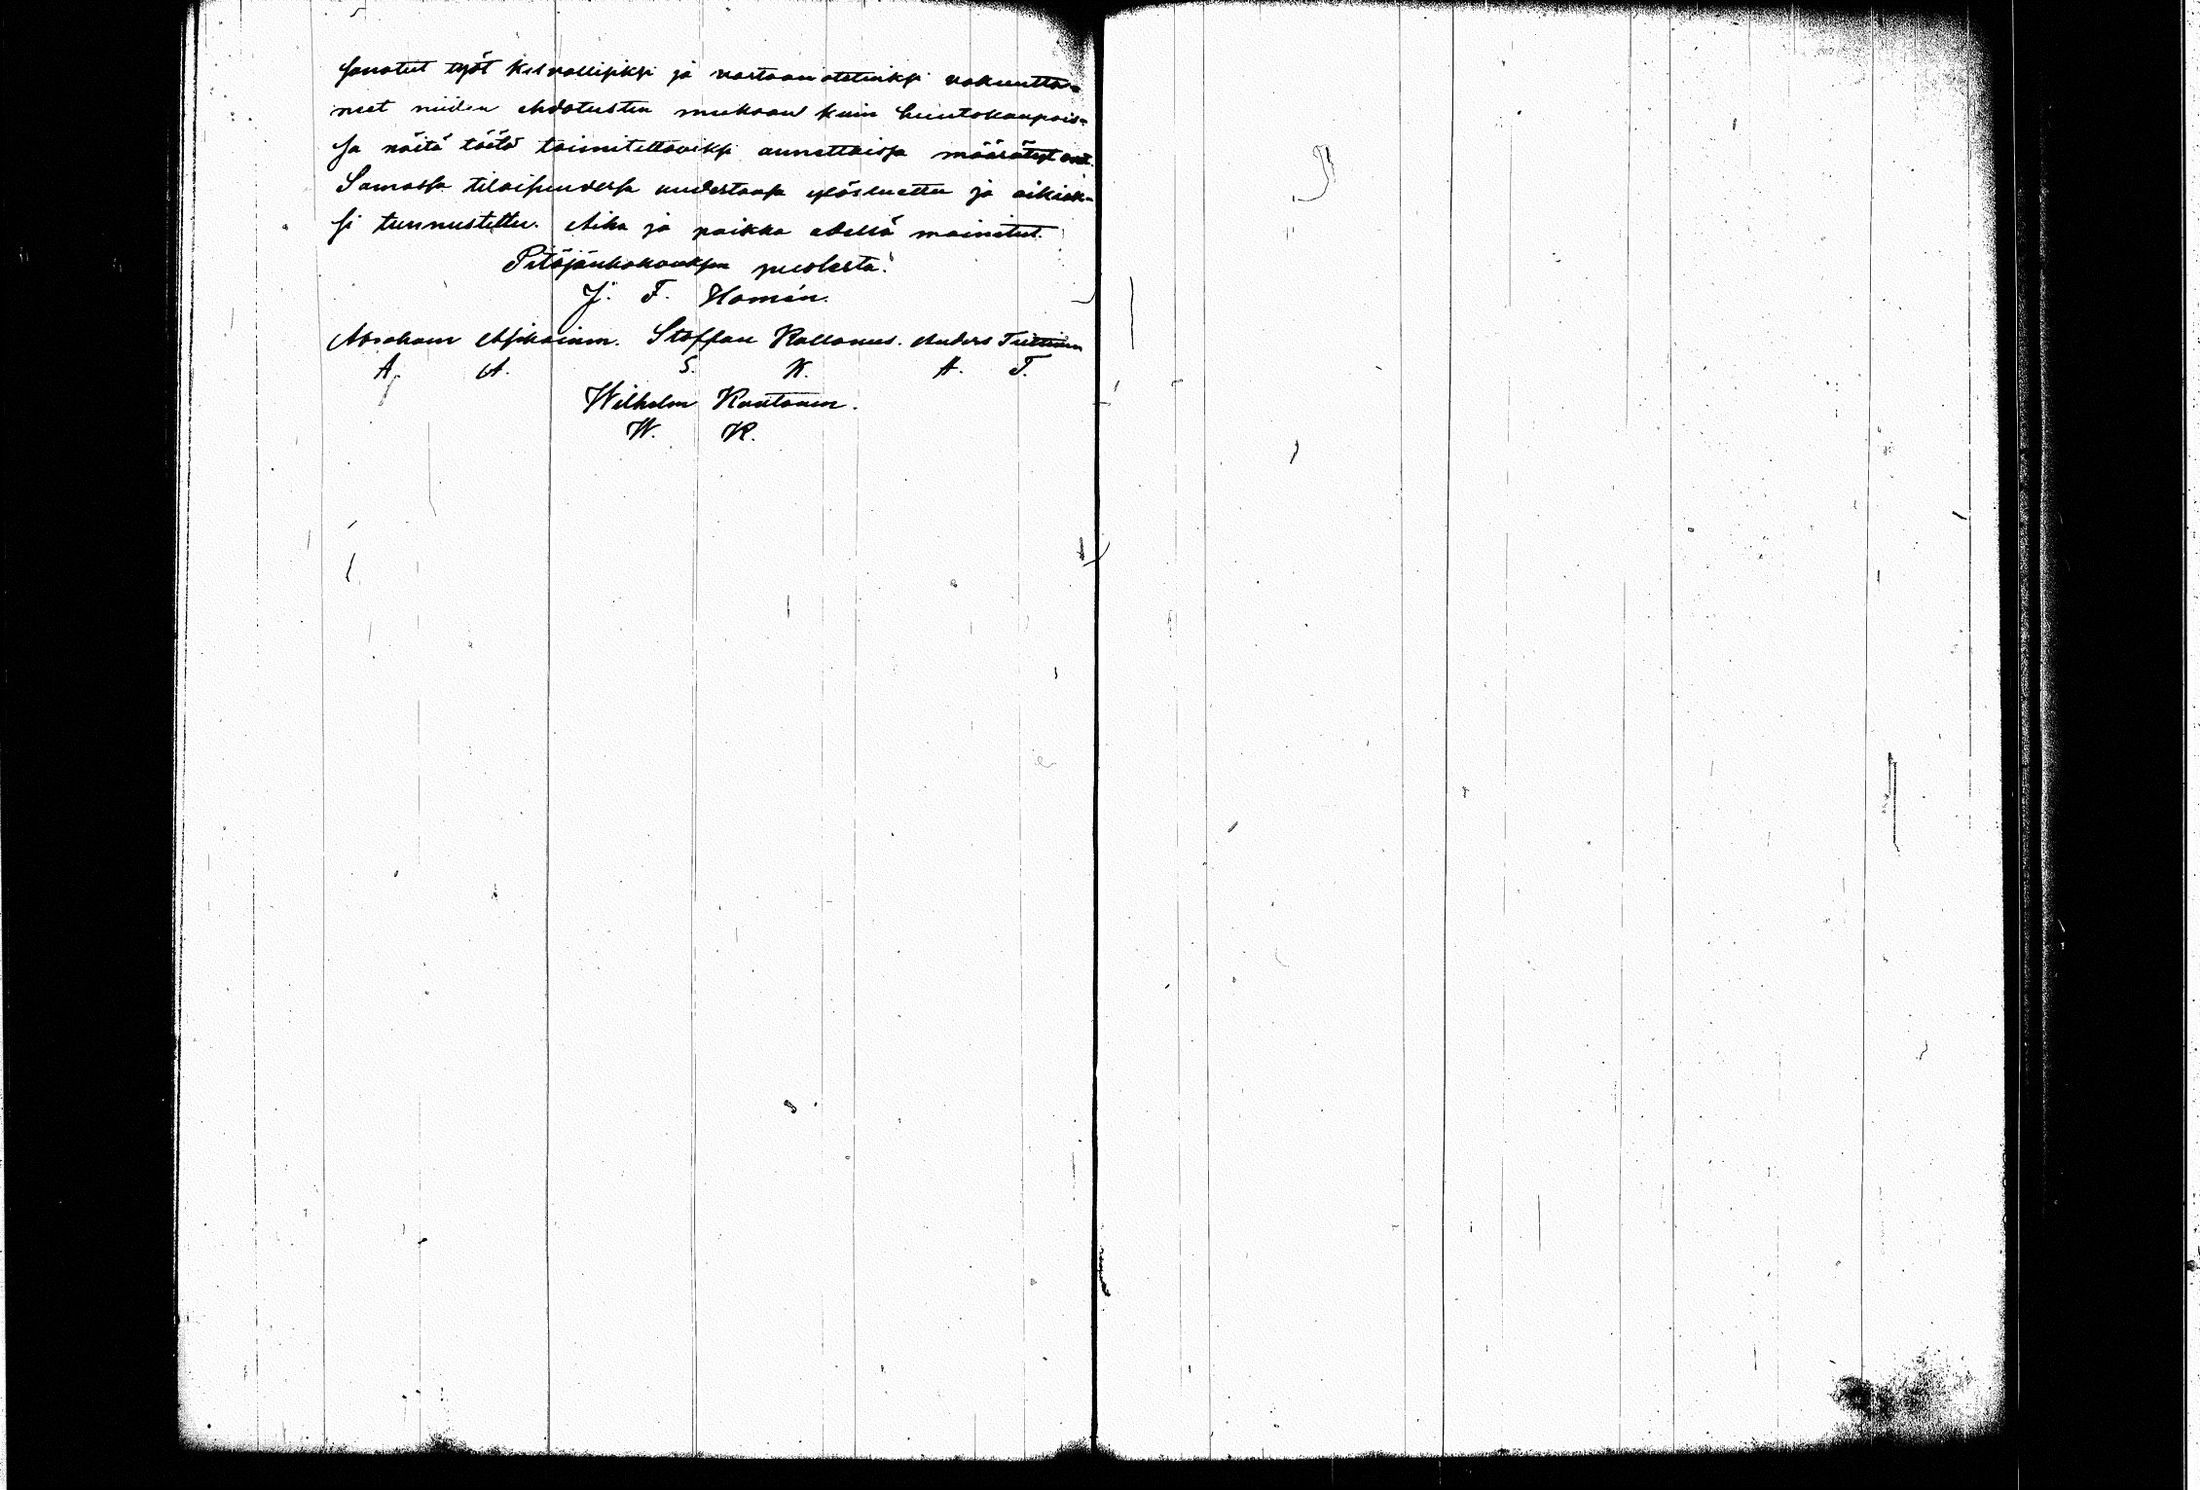 sanotut työt kelvollisiksi ja vastaan otetuiksi vakuutta-
neet niiden ehdotusten mukaan kuin huutokaupois-
sa näitä töitä toimitettaviksi annettaissa määrätyt ovat.
Samassa tilaisuudessa uudestaan ylösluettu ja oikiak-
si tunnustettu. Aika ja paikka edellä mainitut.
Pitäjänkokouksen puolesta:
J. F. Homén.
Abraham Asikainen. Staffan Kallonus. Anders Tiittinen
A. A. S. K. A. T.
Wilhelm Rautanen.
W. R.